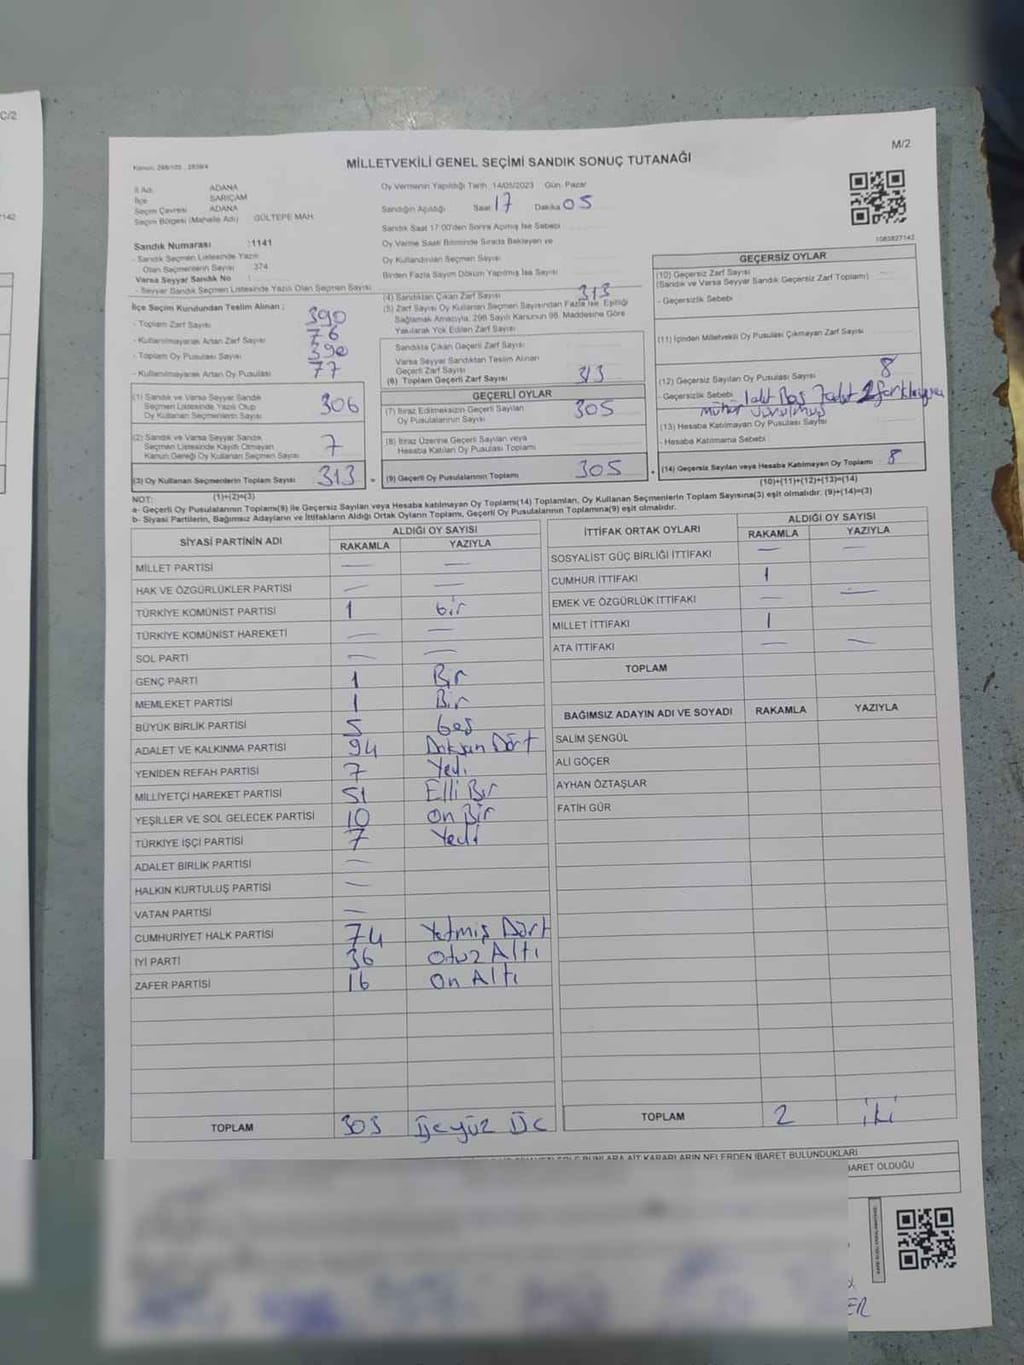 C/2
7142
Kanun: 298/105 , 2839/4
MİLLETVEKİLİ GENEL SEÇİMİ SANDIK SONUÇ TUTANAĞI
M/2
İl Adı ADANA
İlçe SARIÇAM
Seçim Çevresi ADANA
Seçim Bölgesi (Mahalle Adı) GÜLTEPE MAH.
Sandık Numarası :1141
- Sandık Seçmen Listesinde Yazılı
Olan Seçmenlerin Sayısı 374
Varsa Seyyar Sandık No :
- Seyyar Sandık Seçmen Listesinde Yazılı Olan Seçmen Sayısı
Oy Vermenin Yapıldığı Tarih :14/05/2023 Gün: Pazar
Sandığın Açıldığı Saat 17 Dakika 05
Sandık Saat 17:00'den Sonra Açılmış İse Sebebi
Oy Verme Saati Bitiminde Sırada Bekleyen ve
Oy Kullandırılan Seçmen Sayısı
Birden Fazla Sayım Döküm Yapılmış İse Sayısı
1083827142
İlçe Seçim Kurulundan Teslim Alınan ;
- Toplam Zarf Sayısı 390
- Kullanılmayarak Artan Zarf Sayısı 76
- Toplam Oy Pusulası Sayısı 390
- Kullanılmayarak Artan Oy Pusulası 77
(1) Sandık ve Varsa Seyyar Sandık
Seçmen Listesinde Yazılı Olup
Oy Kullanan Seçmenlerin Sayısı 306
(2) Sandık ve Varsa Seyyar Sandık
Seçmen Listesinde Kayıtlı Olmayan
Kanun Gereği Oy Kullanan Seçmen Sayısı 7
(3) Oy Kullanan Seçmenlerin Toplam Sayısı 313 =
(1)+(2)=(3)
(4) Sandıktan Çıkan Zarf Sayısı 313
(5) Zarf Sayısı Oy Kullanan Seçmen Sayısından Fazla İse, Eşitliği
Sağlamak Amacıyla, 298 Sayılı Kanunun 98. Maddesine Göre
Yakılarak Yok Edilen Zarf Sayısı
Sandıkta Çıkan Geçerli Zarf Sayısı
Varsa Seyyar Sandıktan Teslim Alınan
Geçerli Zarf Sayısı
(6) Toplam Geçerli Zarf Sayısı 313
GEÇERLİ OYLAR
(7) İtiraz Edilmeksizin Geçerli Sayılan
Oy Pusulalarının Sayısı 305
(8) İtiraz Üzerine Geçerli Sayılan veya
Hesaba Katılan Oy Pusulası Toplamı
(9) Geçerli Oy Pusulalarının Toplamı 305 +
GEÇERSİZ OYLAR
(10) Geçersiz Zarf Sayısı
(Sandık ve Varsa Seyyar Sandık Geçersiz Zarf Toplamı)
- Geçersizlik Sebebi
(11) İçinden Milletvekili Oy Pusulası Çıkmayan Zarf Sayısı
(12) Geçersiz Sayılan Oy Pusulası Sayısı 8
- Geçersizlik Sebebi 1 adet Boş 7 adet
mühür vurulmuş
(13) Hesaba Katılmayan Oy Pusulası Sayısı
- Hesaba Katılmama Sebebi
(14) Geçersiz Sayılan veya Hesaba Katılmayan Oy Toplamı 8
(10)+(11)+(12)+(13)=(14)
NOT:
a- Geçerli Oy Pusulalarının Toplamı(9) ile Geçersiz Sayılan veya Hesaba katılmayan Oy Toplamı(14) Toplamları, Oy Kullanan Seçmenlerin Toplam Sayısına(3) eşit olmalıdır. (9)+(14)=(3)
b- Siyasi Partilerin, Bağımsız Adayların ve İttifakların Aldığı Ortak Oyların Toplamı, Geçerli Oy Pusulalarının Toplamına(9) eşit olmalıdır.
SİYASİ PARTİNİN ADI ALDIĞI OY SAYISI
RAKAMLA YAZIYLA
MİLLET PARTİSİ — —
HAK VE ÖZGÜRLÜKLER PARTİSİ — —
TÜRKİYE KOMÜNİST PARTİSİ 1 bir
TÜRKİYE KOMÜNİST HAREKETİ — —
SOL PARTİ — —
GENÇ PARTİ 1 Bir
MEMLEKET PARTİSİ 1 Bir
BÜYÜK BİRLİK PARTİSİ 5 beş
ADALET VE KALKINMA PARTİSİ 94 Doksan Dört
YENİDEN REFAH PARTİSİ 7 Yedi
MİLLİYETÇİ HAREKET PARTİSİ 51 Elli Bir
YEŞİLLER VE SOL GELECEK PARTİSİ 10 on Bir
TÜRKİYE İŞÇİ PARTİSİ 7 Yedi
ADALET BİRLİK PARTİSİ —
HALKIN KURTULUŞ PARTİSİ —
VATAN PARTİSİ —
CUMHURİYET HALK PARTİSİ 74 Yetmiş Dört
İYİ PARTİ 36 Otuz Altı
ZAFER PARTİSİ 16 On Altı
TOPLAM 303 Üçyüz Üç
İTTİFAK ORTAK OYLARI ALDIĞI OY SAYISI
RAKAMLA YAZIYLA
SOSYALİST GÜÇ BİRLİĞİ İTTİFAKI — —
CUMHUR İTTİFAKI 1
EMEK VE ÖZGÜRLÜK İTTİFAKI — —
MİLLET İTTİFAKI 1
ATA İTTİFAKI — —
TOPLAM
BAĞIMSIZ ADAYIN ADI VE SOYADI RAKAMLA YAZIYLA
SALİM ŞENGÜL
ALİ GÖÇER
AYHAN ÖZTAŞLAR
FATİH GÜR
TOPLAM 2 iki
BUNLARA AİT KARARLARIN NELERDEN İBARET BULUNDUKLARI
İBARET OLDUĞU
ER